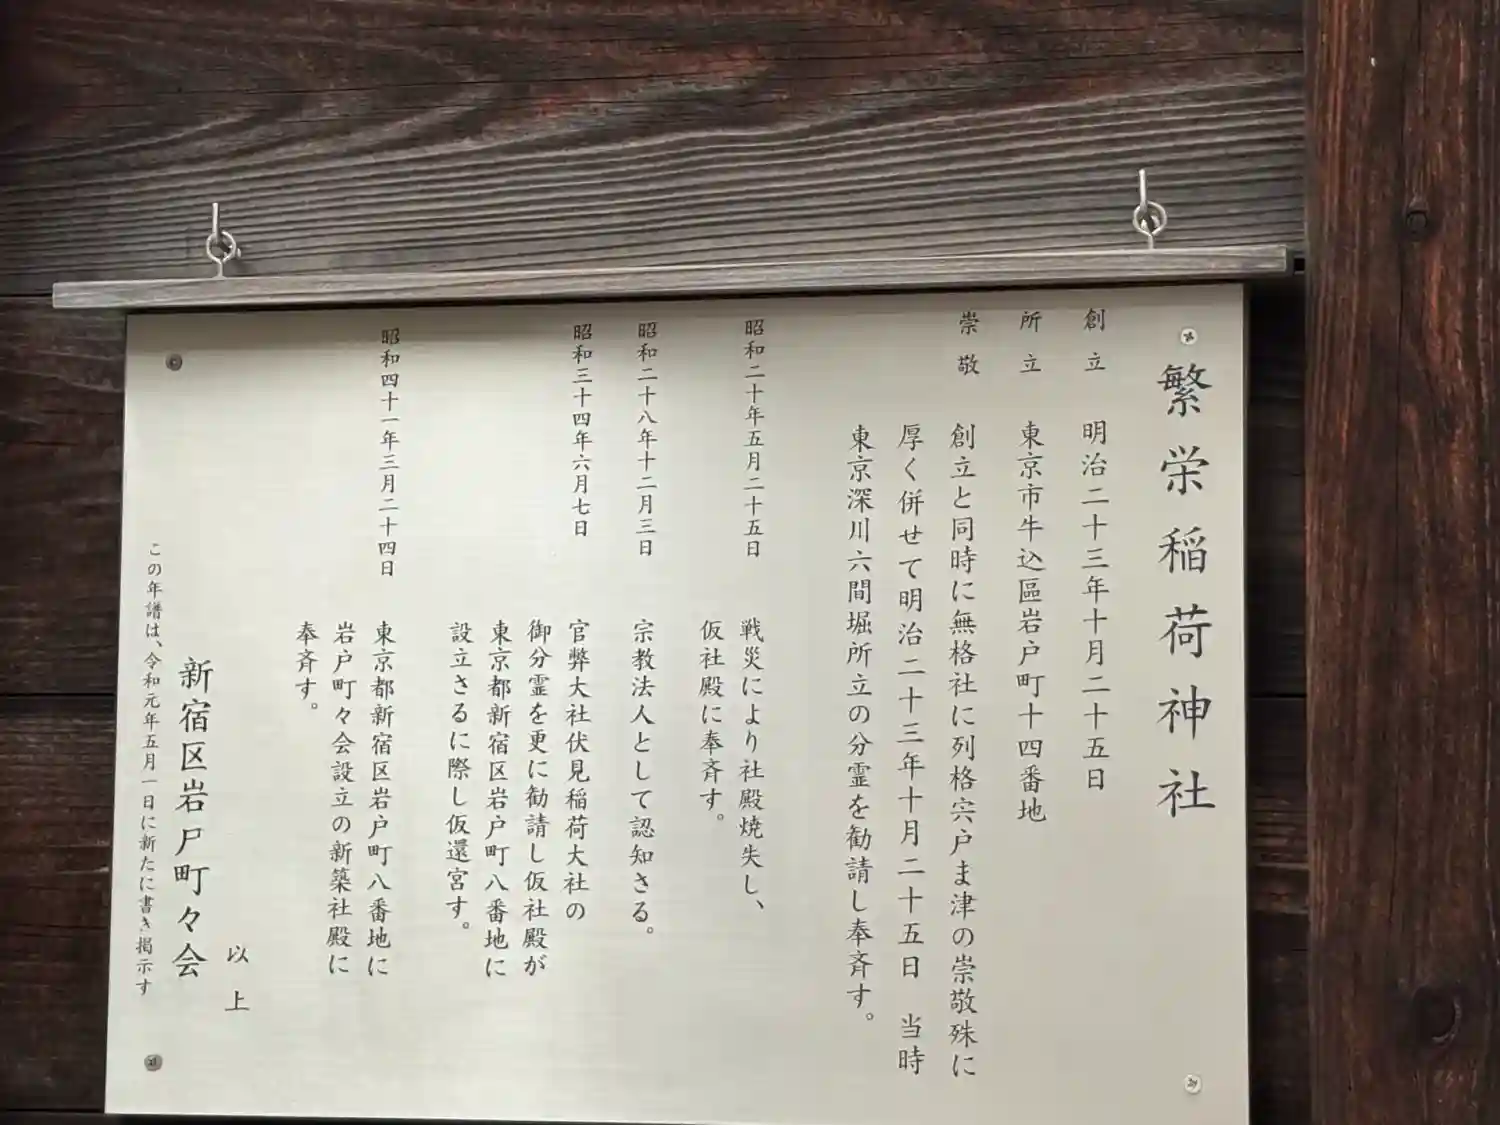 繁栄稲荷神社
創立　明治二十三年十月二十五日
所立　東京市牛込區岩戸町十四番地
崇敬　創立と同時に無格社に列格宍戸ま津の崇敬殊に
厚く併せて明治二十三年十月二十五日　当時
東京深川六間堀所立の分霊を勧請し奉斉す。
昭和二十年五月二十五日　戦災により社殿焼失し、
仮社殿に奉斉す。
昭和二十八年十二月三日　宗教法人として認知さる。
昭和三十四年六月七日　官弊大社伏見稲荷大社の
御分霊を更に勧請し仮社殿が
東京都新宿区岩戸町八番地に
設立さるに際し仮還宮す。
昭和四十一年三月二十四日　東京都新宿区岩戸町八番地に
岩戸町々会設立の新築社殿に
奉斉す。
以上
新宿区岩戸町々会
この年譜は、令和元年五月一日に新たに書き掲示す